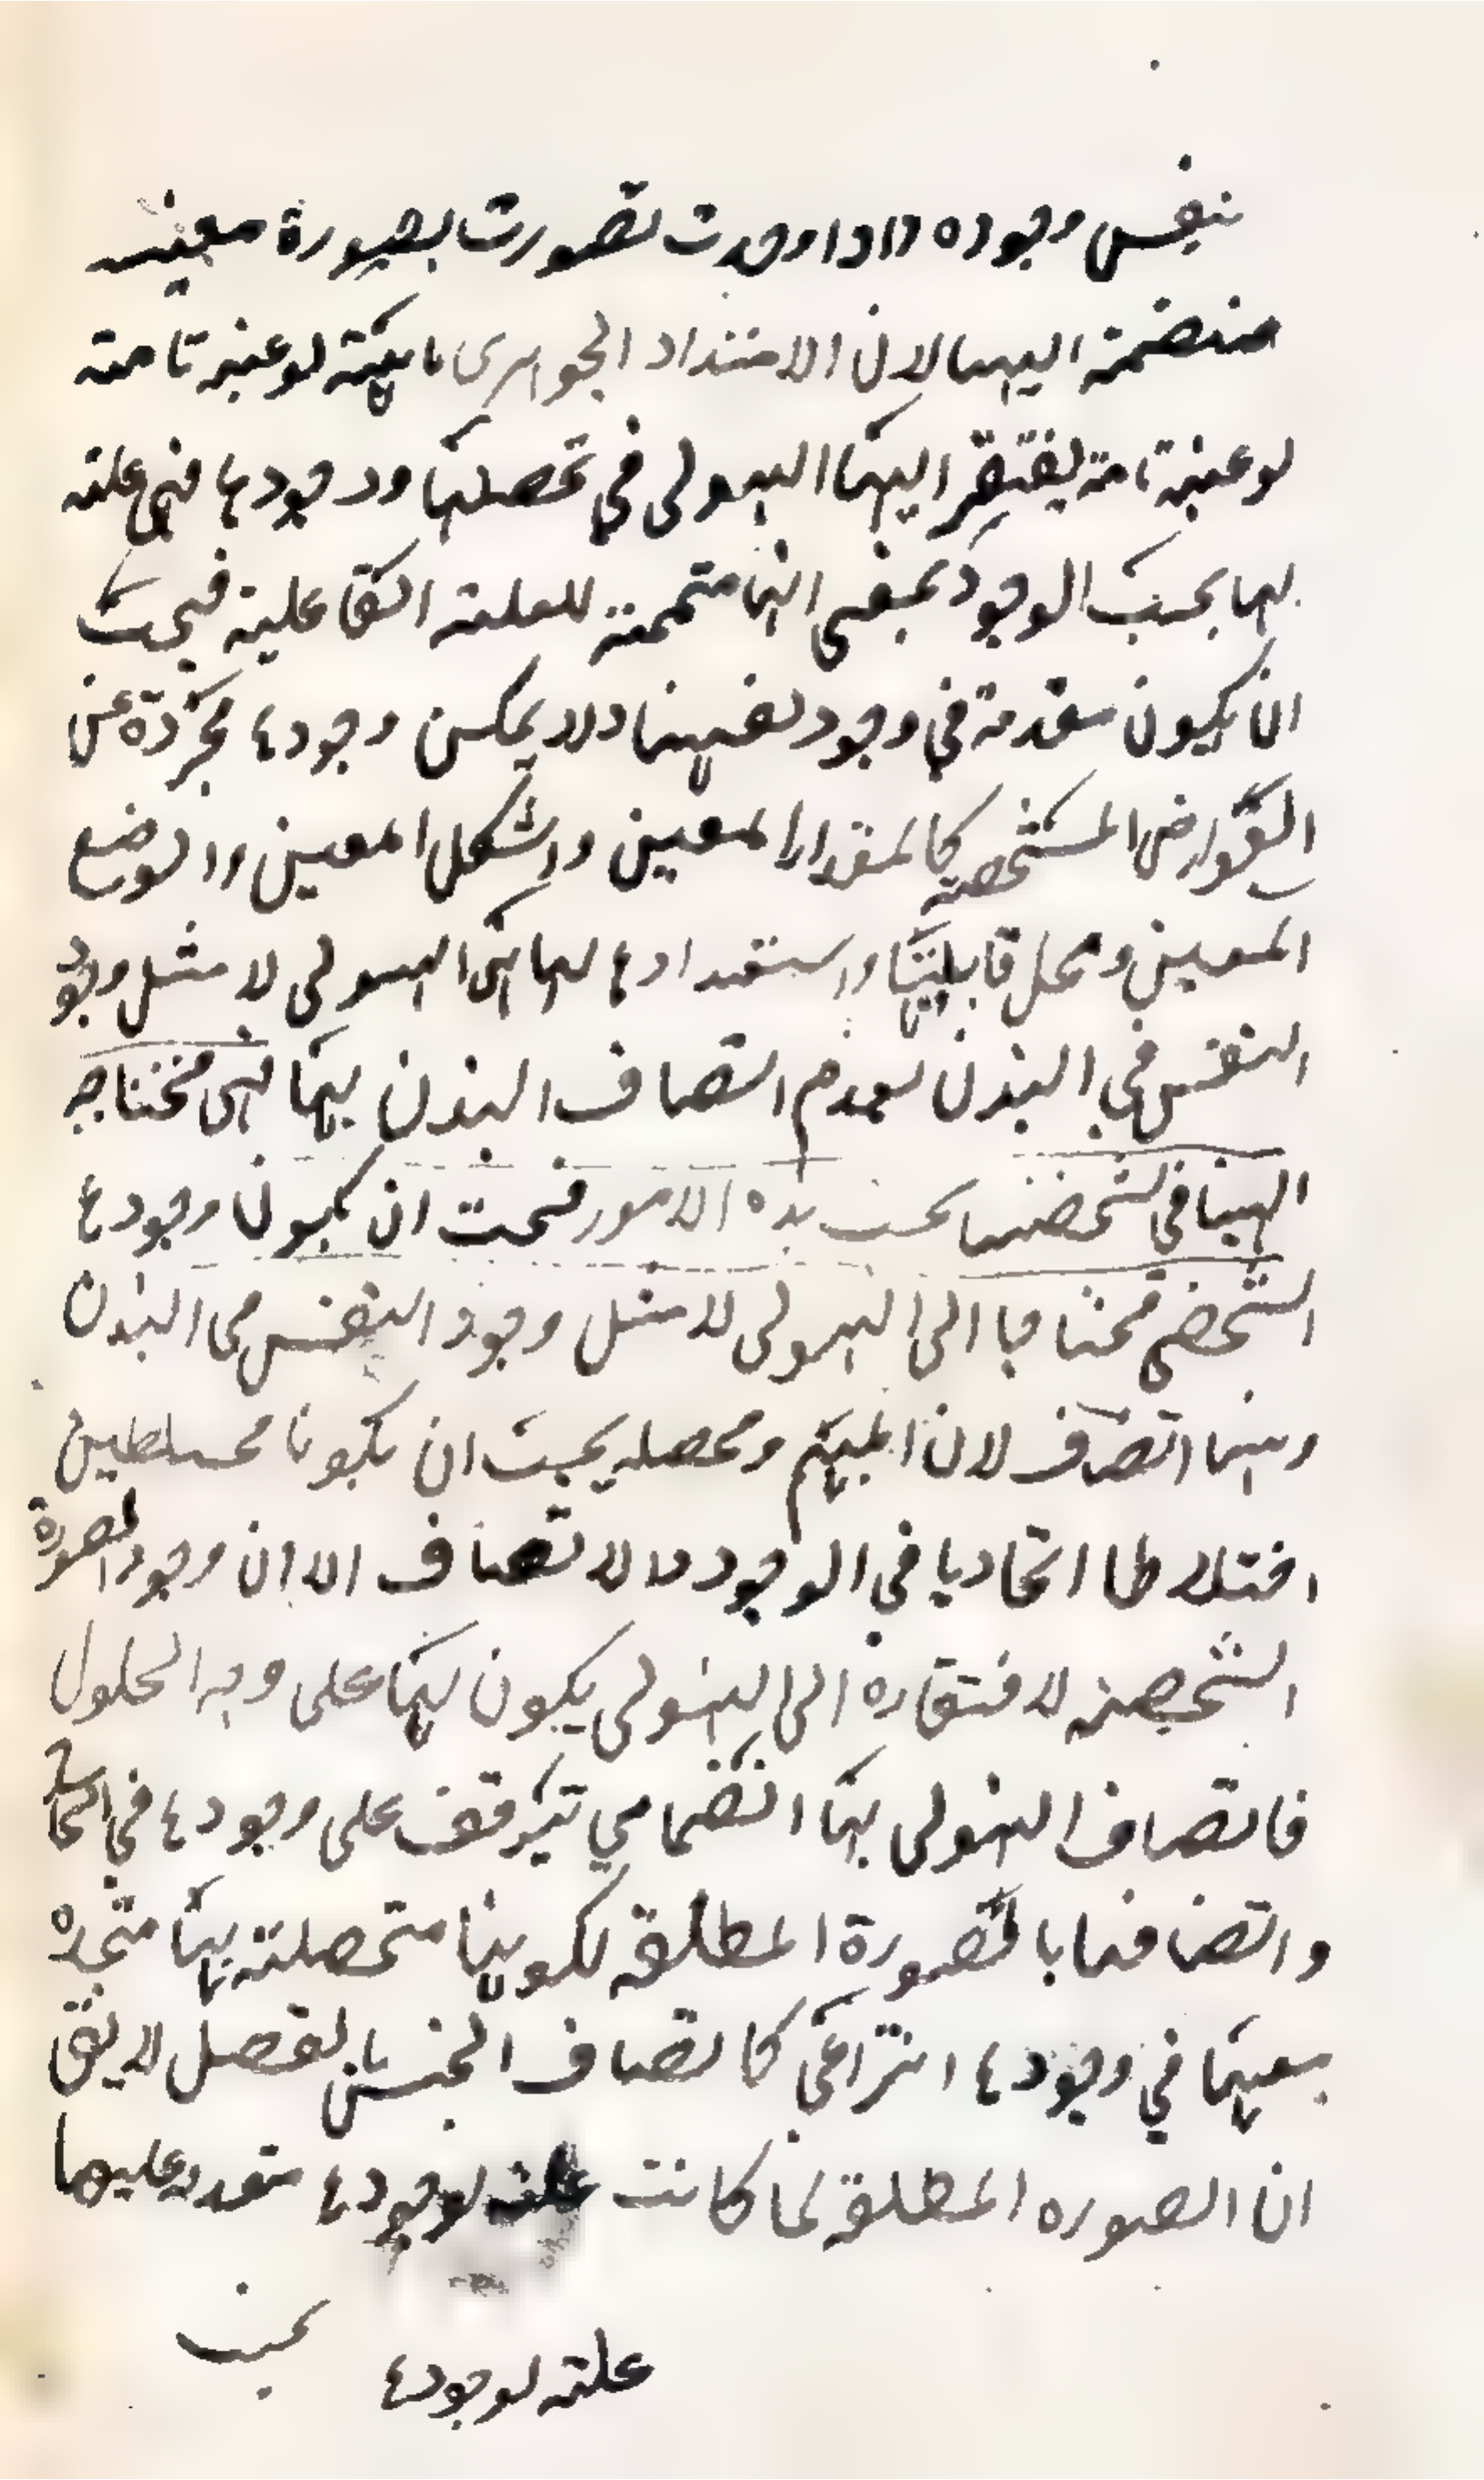 بنفس وجوده واذا وجدت تصورت بصورة معينة
منضمة اليها لان الامتداد الجوهرى ماهية نوعية تامة
نوعية تامة يفتقر اليها الهيولى في تحصلها ووجودها فهى علة
لها بحسب الوجود بمعنى انها متممة للعلة الفاعلية فيجب
ان يكون متقدمة في وجود نفسها ولا يمكن وجودها مجردة عن
العوارض المشخصة كالمقدار المعين والشكل المعين والوضع
المعين ومحل قابليتها واستعدادها لها انما الهيولى لا مثل وجود
النفس في البدن لعدم اتصاف البدن بها فهى محتاجة
اليها في تشخصها بحسب هذه الامور فيجب ان يكون وجودها
الشخصى محتاجا الى الهيولى لا مثل وجود النفس فى البدن
وبينهما اتصاف لان المبهم ومحصله يجب ان يكونا مختلطين
اختلاطا اتحاديا في الوجود والاتصاف الا ان وجود الصورة
الشخصية لافتقاره الى الهيولى يكون لها على وجه الحلول
فاتصاف الهيولى بها انضمامي يتوقف على وجودها في الحاشية
واتصافها بالصورة المطلقة لكونها متحصلة بها متحدة
معها في وجودها انتزاعي كاتصاف الجنس بالفصل لا يقال
ان الصوره المطلقة لما كانت علة لوجودها متقدمة عليها
علة لوجودها بحسب